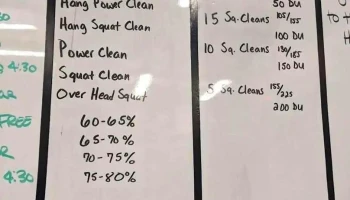 Hang Power Clean
Hang Squat Clean
Power Clean
Squat Clean
Over Head Squat
60-65%
65-70%
70-75%
75-80%
50 DU
15 Sq. Cleans 105/155
100 DU
10 Sq. Cleans 130/185
150 DU
5 Sq. Cleans 155/225
200 DU
4:30
FREE
4:30
to